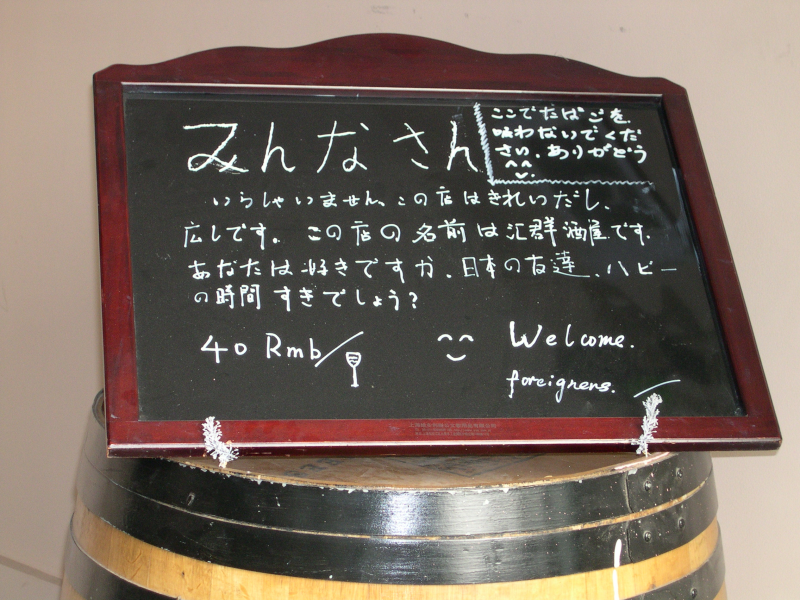 みんなさん
ここでたばこを
味わないでくだ
さい、ありがどう
いらしゃいません、この店はきれいだし、
広しです。この店の名前は汇群酒屋です.
あなたは好きですか、日本の友達、ハピー
の時間すきでしょう?
40 Rmb/
Welcome.
foreigners.